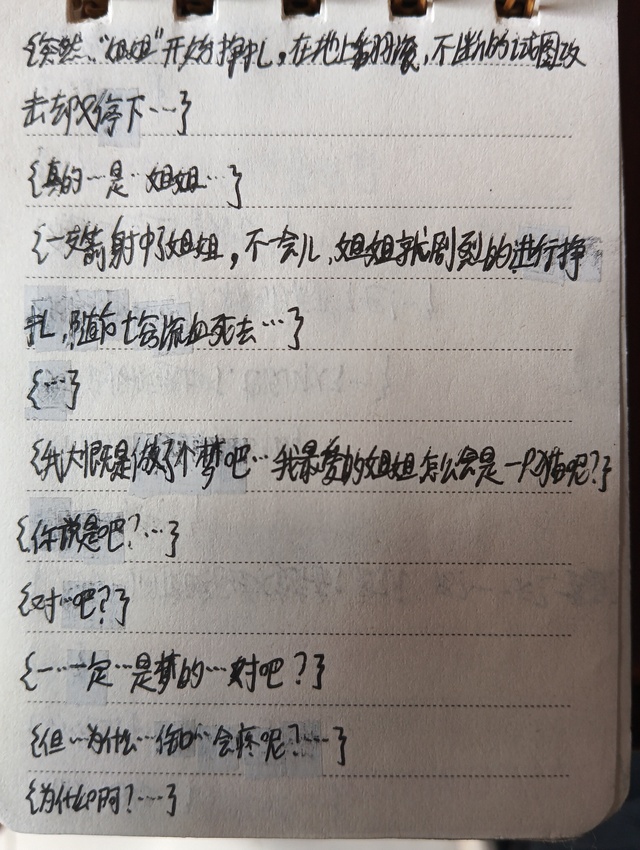 {突然,"姐姐"开始挣扎,在地上翻滚,不断的试图攻
击却又停下…}
{真的…是…姐姐…}
{一支箭射中了姐姐,不一会儿,姐姐就剧烈的进行挣
扎,随后七窍流血死去…}
{…}
{我大概是做了个梦吧…我最爱的姐姐怎么会是一只猫呢?}
{你说是吧?…}
{对…吧?}
{一…一定…是梦的…对吧?}
{但…为什么…伤口…会疼呢?…}
{为什么啊?…}